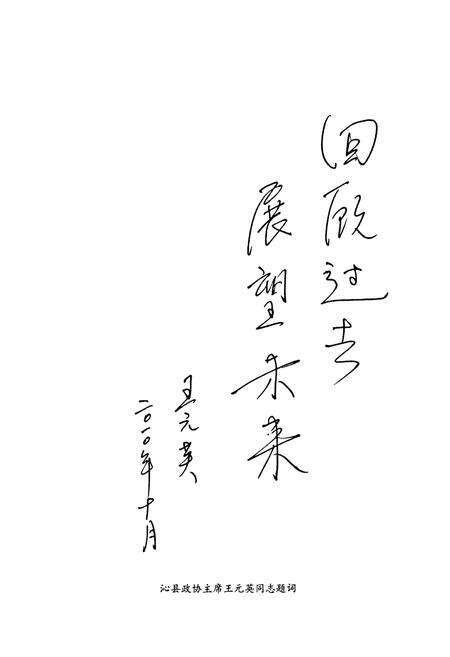 回顾过去
展望未来
王元英
二〇一〇年十月
沁县政协主席王元英同志题词